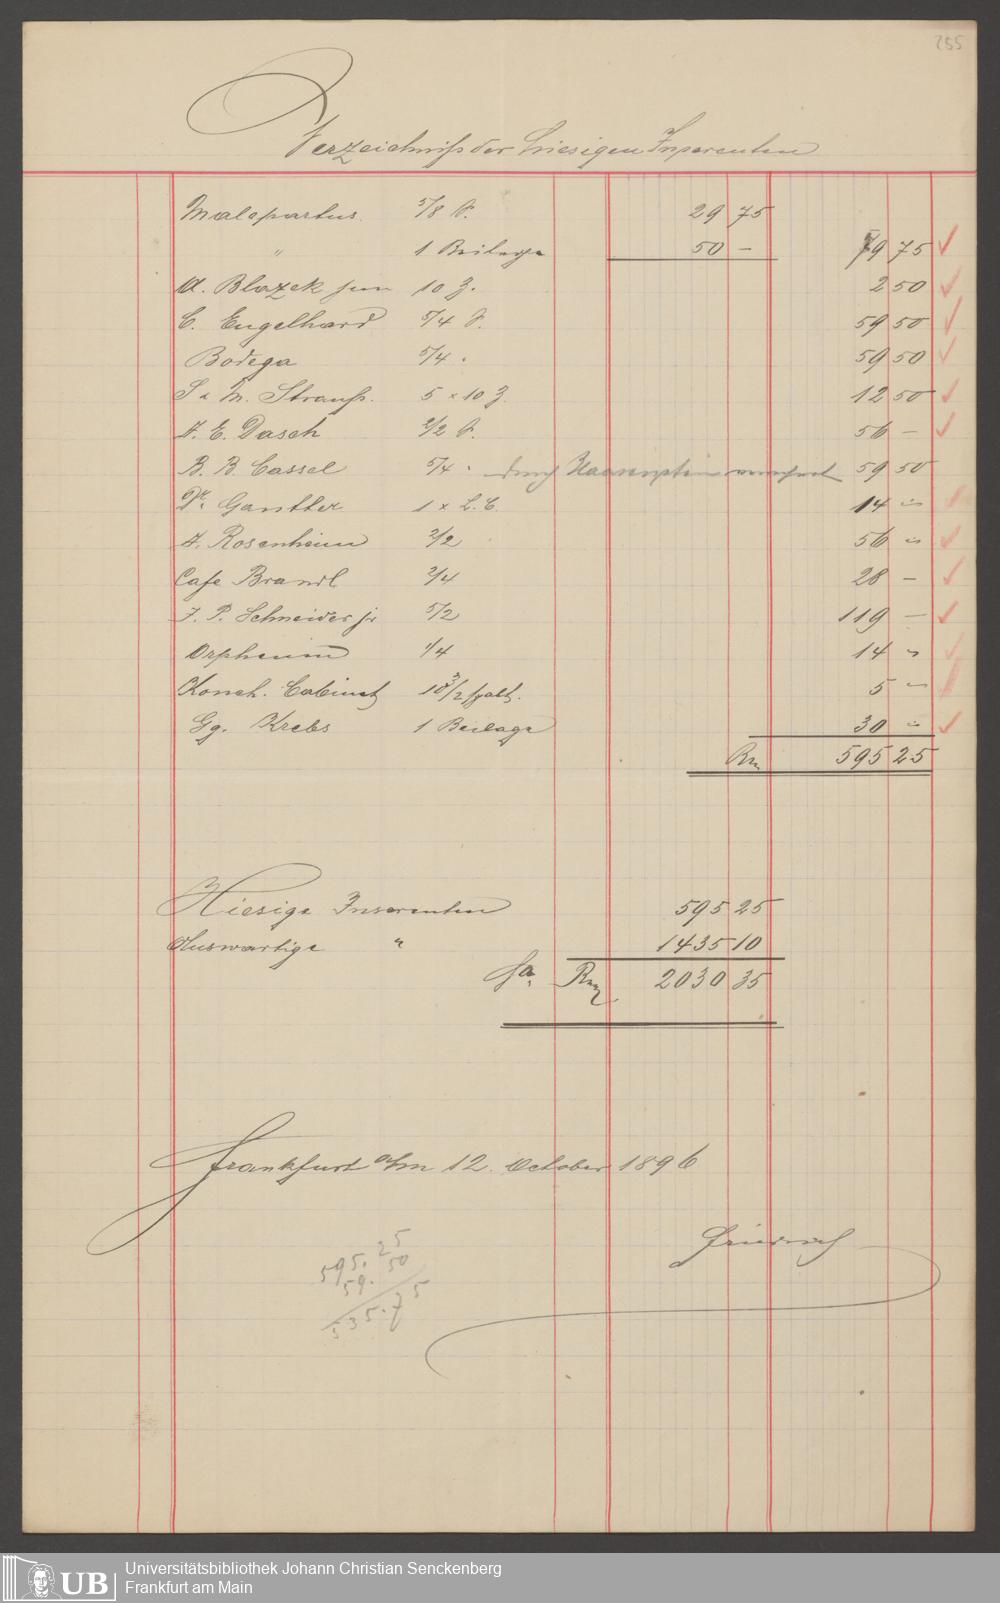 255
Verzeichniß der hiesigen Inserenten
Malepartus. 5/8 S. 29 75
" 1 Beilage 50 — 79 75
A. Blazek jun 10 Z. 2 50
C. Engelhard 5/4 S. 59 50
Bodega 5/4 " 59 50
S & M. Strauß. 5 x 10 Z. 12 50
A. E. Dasch 2/2 S. 56 —
B. B. Cassel 5/4 " durch 59 50
Dr. Ganther 1 x L. C. 14 "
A. Rosenheim 2/2 56 "
Cafe Brandl 2/4 28 —
J. P. Schneider jr 5/2 119 —
Orpheum 1/4 14 "
Konch. Cabinet 10 3/2 spalt. 5 "
Gg. Krebs 1 Beilage 30 "
Rm 595 25
Hiesige Inserenten 595 25
Auswärtige " 1435 10
Sa. Rm 2030 35
Frankfurt a/m 12. October 1896
Friedrich
595.25
59.50
535.75
UB
Universitätsbibliothek Johann Christian Senckenberg
Frankfurt am Main